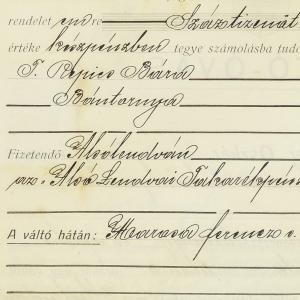 rendelet en re Száztizenöt
értéke készpénzben tegye számolásba tudo
T. Repics Bára
Bántornya
Fizetendő Alsólendván
az Alsó Lendvai Takarékpénz
A váltó hátán: Marasa ferencz